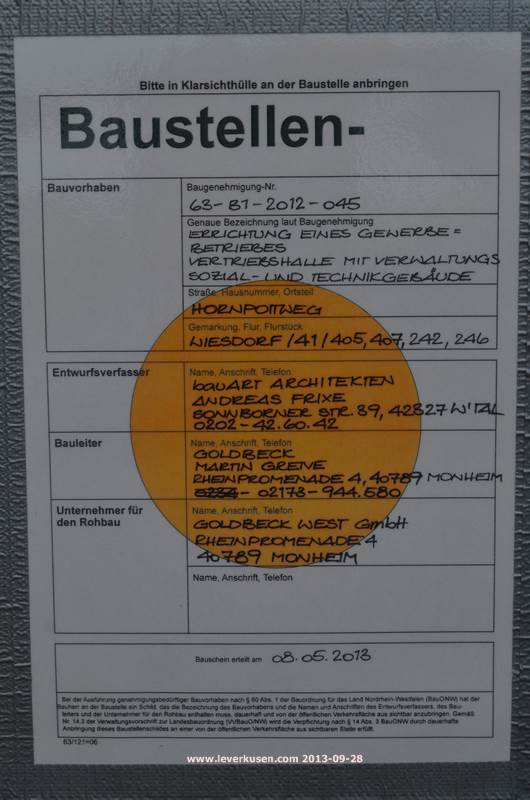 Bitte in Klarsichthülle an der Baustelle anbringen
Baustellen-
Bauvorhaben
Baugenehmigung-Nr.
63-B1-2012-045
Genaue Bezeichnung laut Baugenehmigung
ERRICHTUNG EINES GEWERBE=
BETRIEBES
VERTRIEBSHALLE MIT VERWALTUNGS
SOZIAL- UND TECHNIKGEBÄUDE
Straße, Hausnummer, Ortsteil
HORNPOTTWEG
Gemarkung, Flur, Flurstück
WIESDORF/41/405,407,242,246
Entwurfsverfasser
Name, Anschrift, Telefon
bauART ARCHITEKTEN
ANDREAS FRIXE
SONNBORNER STR. 89, 42327 W'TAL
0202-42.60.42
Bauleiter
Name, Anschrift, Telefon
GOLDBECK
MARTIN GREIVE
RHEINPROMENADE 4, 40789 MONHEIM
- 02173-944.580
Unternehmer für
den Rohbau
Name, Anschrift, Telefon
GOLDBECK WEST GmbH
RHEINPROMENADE 4
40789 MONHEIM
Name, Anschrift, Telefon
Bauschein erteilt am 08.05.2013
Bei der Ausführung genehmigungsbedürftiger Bauvorhaben nach § 60 Abs. 1 der Bauordnung für das Land Nordrhein-Westfalen (BauO/NW) hat der
Bauherr an der Baustelle ein Schild, das die Bezeichnung des Bauvorhabens und die Namen und Anschriften des Entwurfsverfassers, des Bau-
leiters und der Unternehmer für den Rohbau enthalten muss, dauerhaft und von der öffentlichen Verkehrsfläche aus sichtbar anzubringen. Gemäß
Nr. 14.3 der Verwaltungsvorschrift zur Landesbauordnung (VVBauO/NW) wird die Verpflichtung nach § 14 Abs. 3 BauO/NW durch dauerhafte
Anbringung dieses Baustellenschildes an einer von der öffentlichen Verkehrsfläche aus sichtbaren Stelle erfüllt.
63/121=06
www.leverkusen.com 2013-09-28